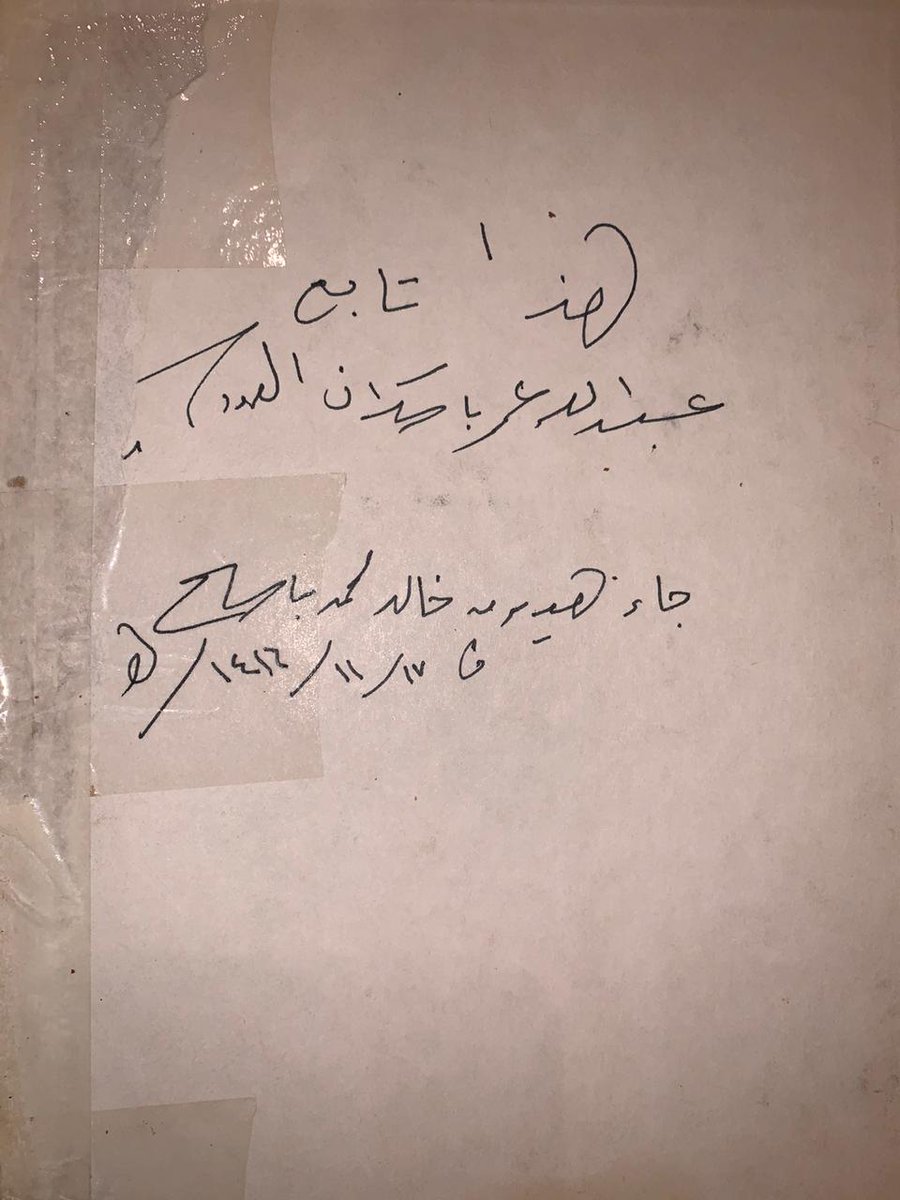 هذا تابع
عبدالله عمر باحمدان العمودي
جاء هدية من خالد محمد با
في ١٧/١١/١٤١٦/ه